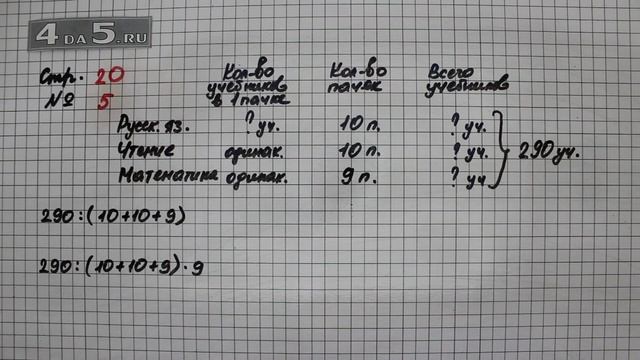 4DA5.RU
Стр. 20
№ 5
Кол-во учебников в 1 пачке
Кол-во пачек
Всего учебников
Русск. яз. ? уч. 10 п. ? уч.
Чтение одинак. 10 п. ? уч. 290 уч.
Математика одинак. 9 п. ? уч
290:(10+10+9)
290:(10+10+9)·9